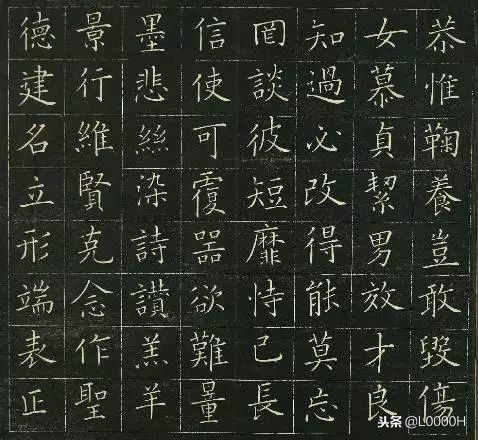 恭惟鞠養豈敢毀傷
女慕貞絜男效才良
知過必改得能莫忘
罔談彼短靡恃己長
信使可覆噐欲難量
墨悲絲染詩讚羔羊
景行維賢克念作聖
德建名立形端表正
头条 @L0000H